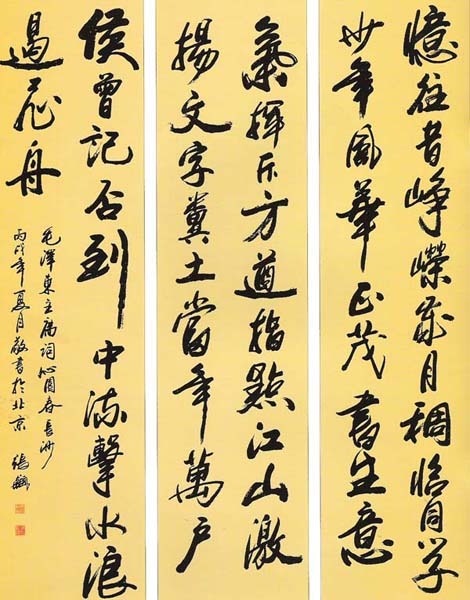 憶往昔峥嶸歲月稠恰同学
少年風華正茂書生意
氣揮斥方遒指點江山激
揚文字糞土當年萬户
侯曾記否到中流擊水浪
遏飛舟
毛澤東主席詞沁園春長沙
丙戌年夏月敬書於北京